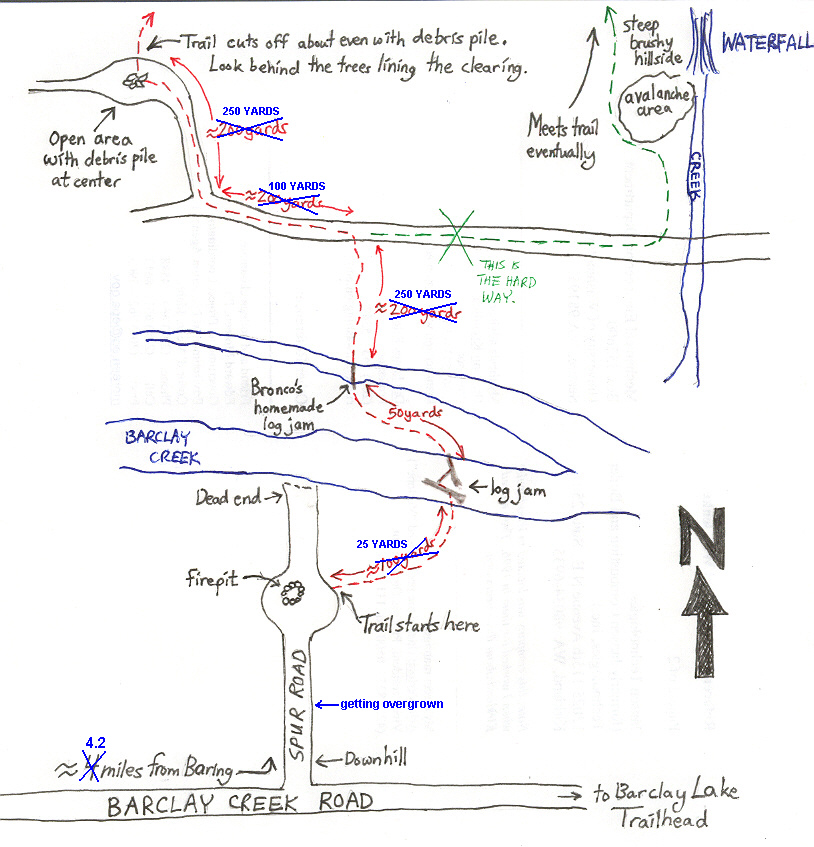 Trail cuts off about even with debris pile.
Look behind the trees lining the clearing.
steep
brushy
hillside
WATERFALL
avalanche
area
Meets trail
eventually
CREEK
Open area
with debris pile
at center
250 YARDS
≈200 yards
100 YARDS
≈20 yards
THIS IS
THE HARD
WAY.
250 YARDS
≈200 yards
Bronco's
homemade
log jam
50 yards
BARCLAY
CREEK
log jam
Dead end
25 YARDS
≈100 yards
firepit
Trail starts here
N
SPUR ROAD
getting overgrown
4.2
≈4 miles from Baring
Downhill
BARCLAY CREEK ROAD
to Barclay Lake
Trailhead